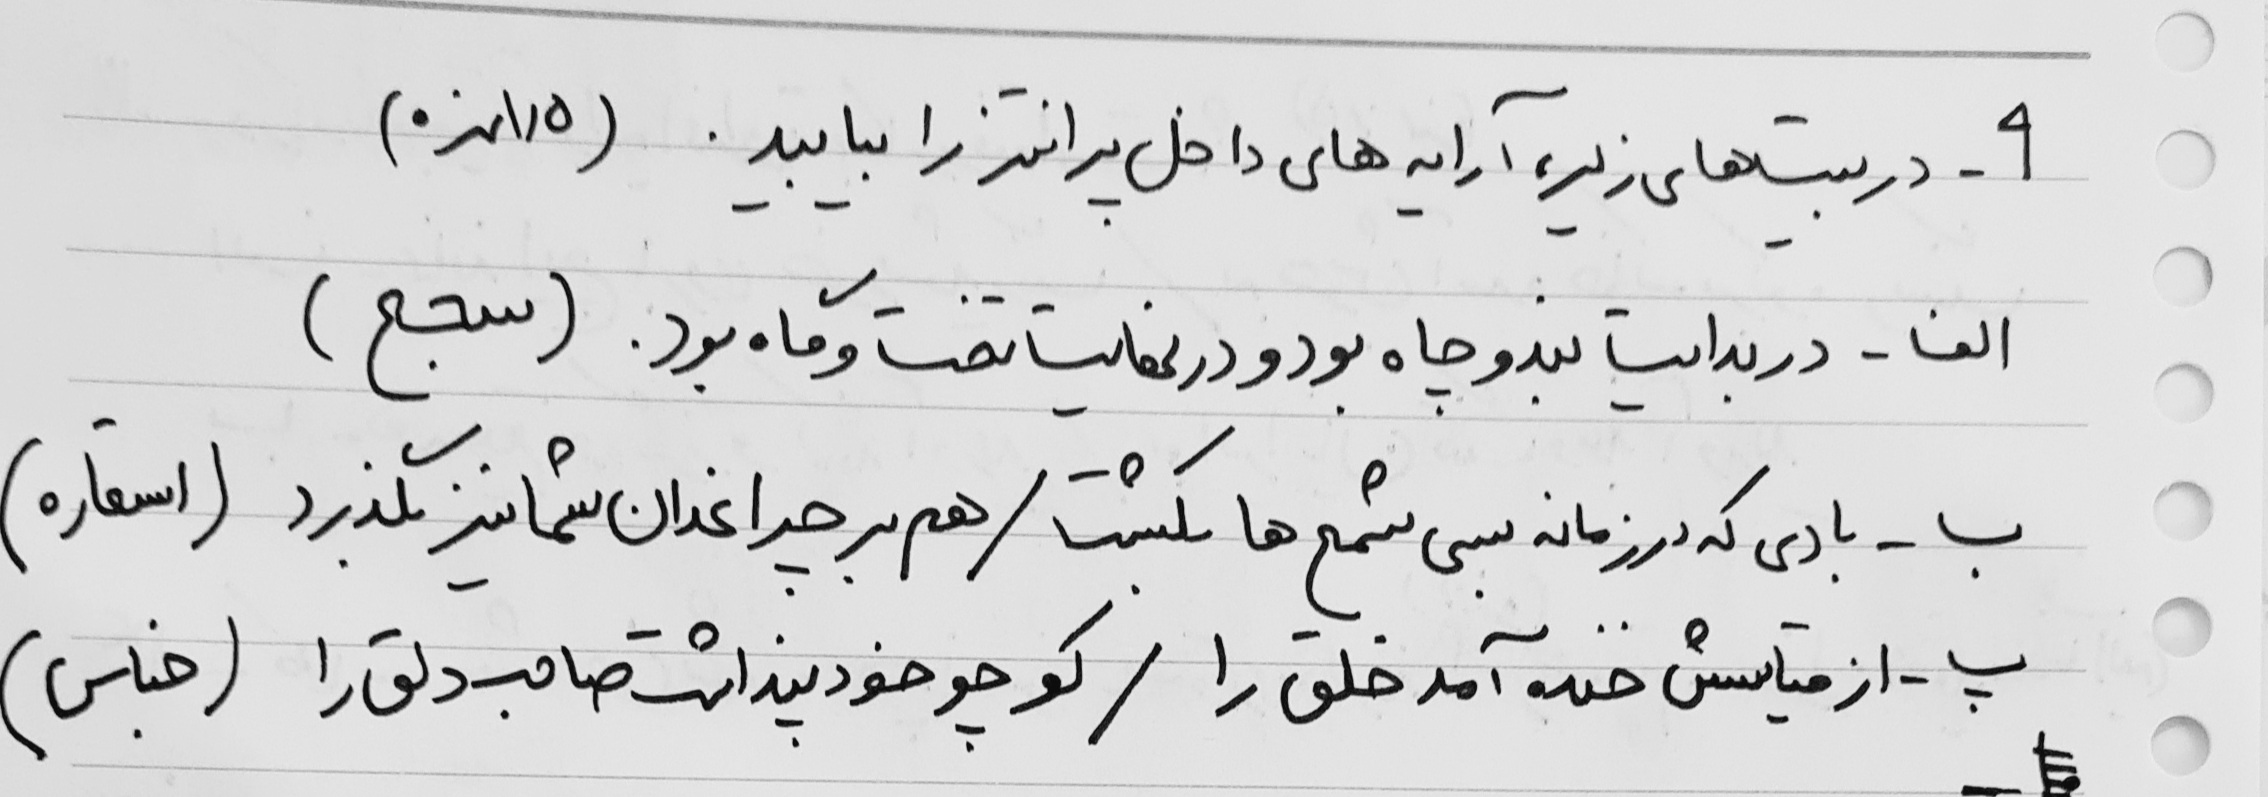 ۹- در بیت‌های زیر، آرایه های داخل پرانتز را بیابید. (۱/۵ نمره)
الف - در بدایت بند و چاه بود و در نهایت تخت و گاه بود. (سجع)
ب - بادی که در زمانه بسی شمع ها بکشت / هم بر چراغدان شما نیز بگذرد (استعاره)
پ - از قیاسش خنده آمد خلق را / کو چو خود پنداشت صاحب دلق را (جناس)